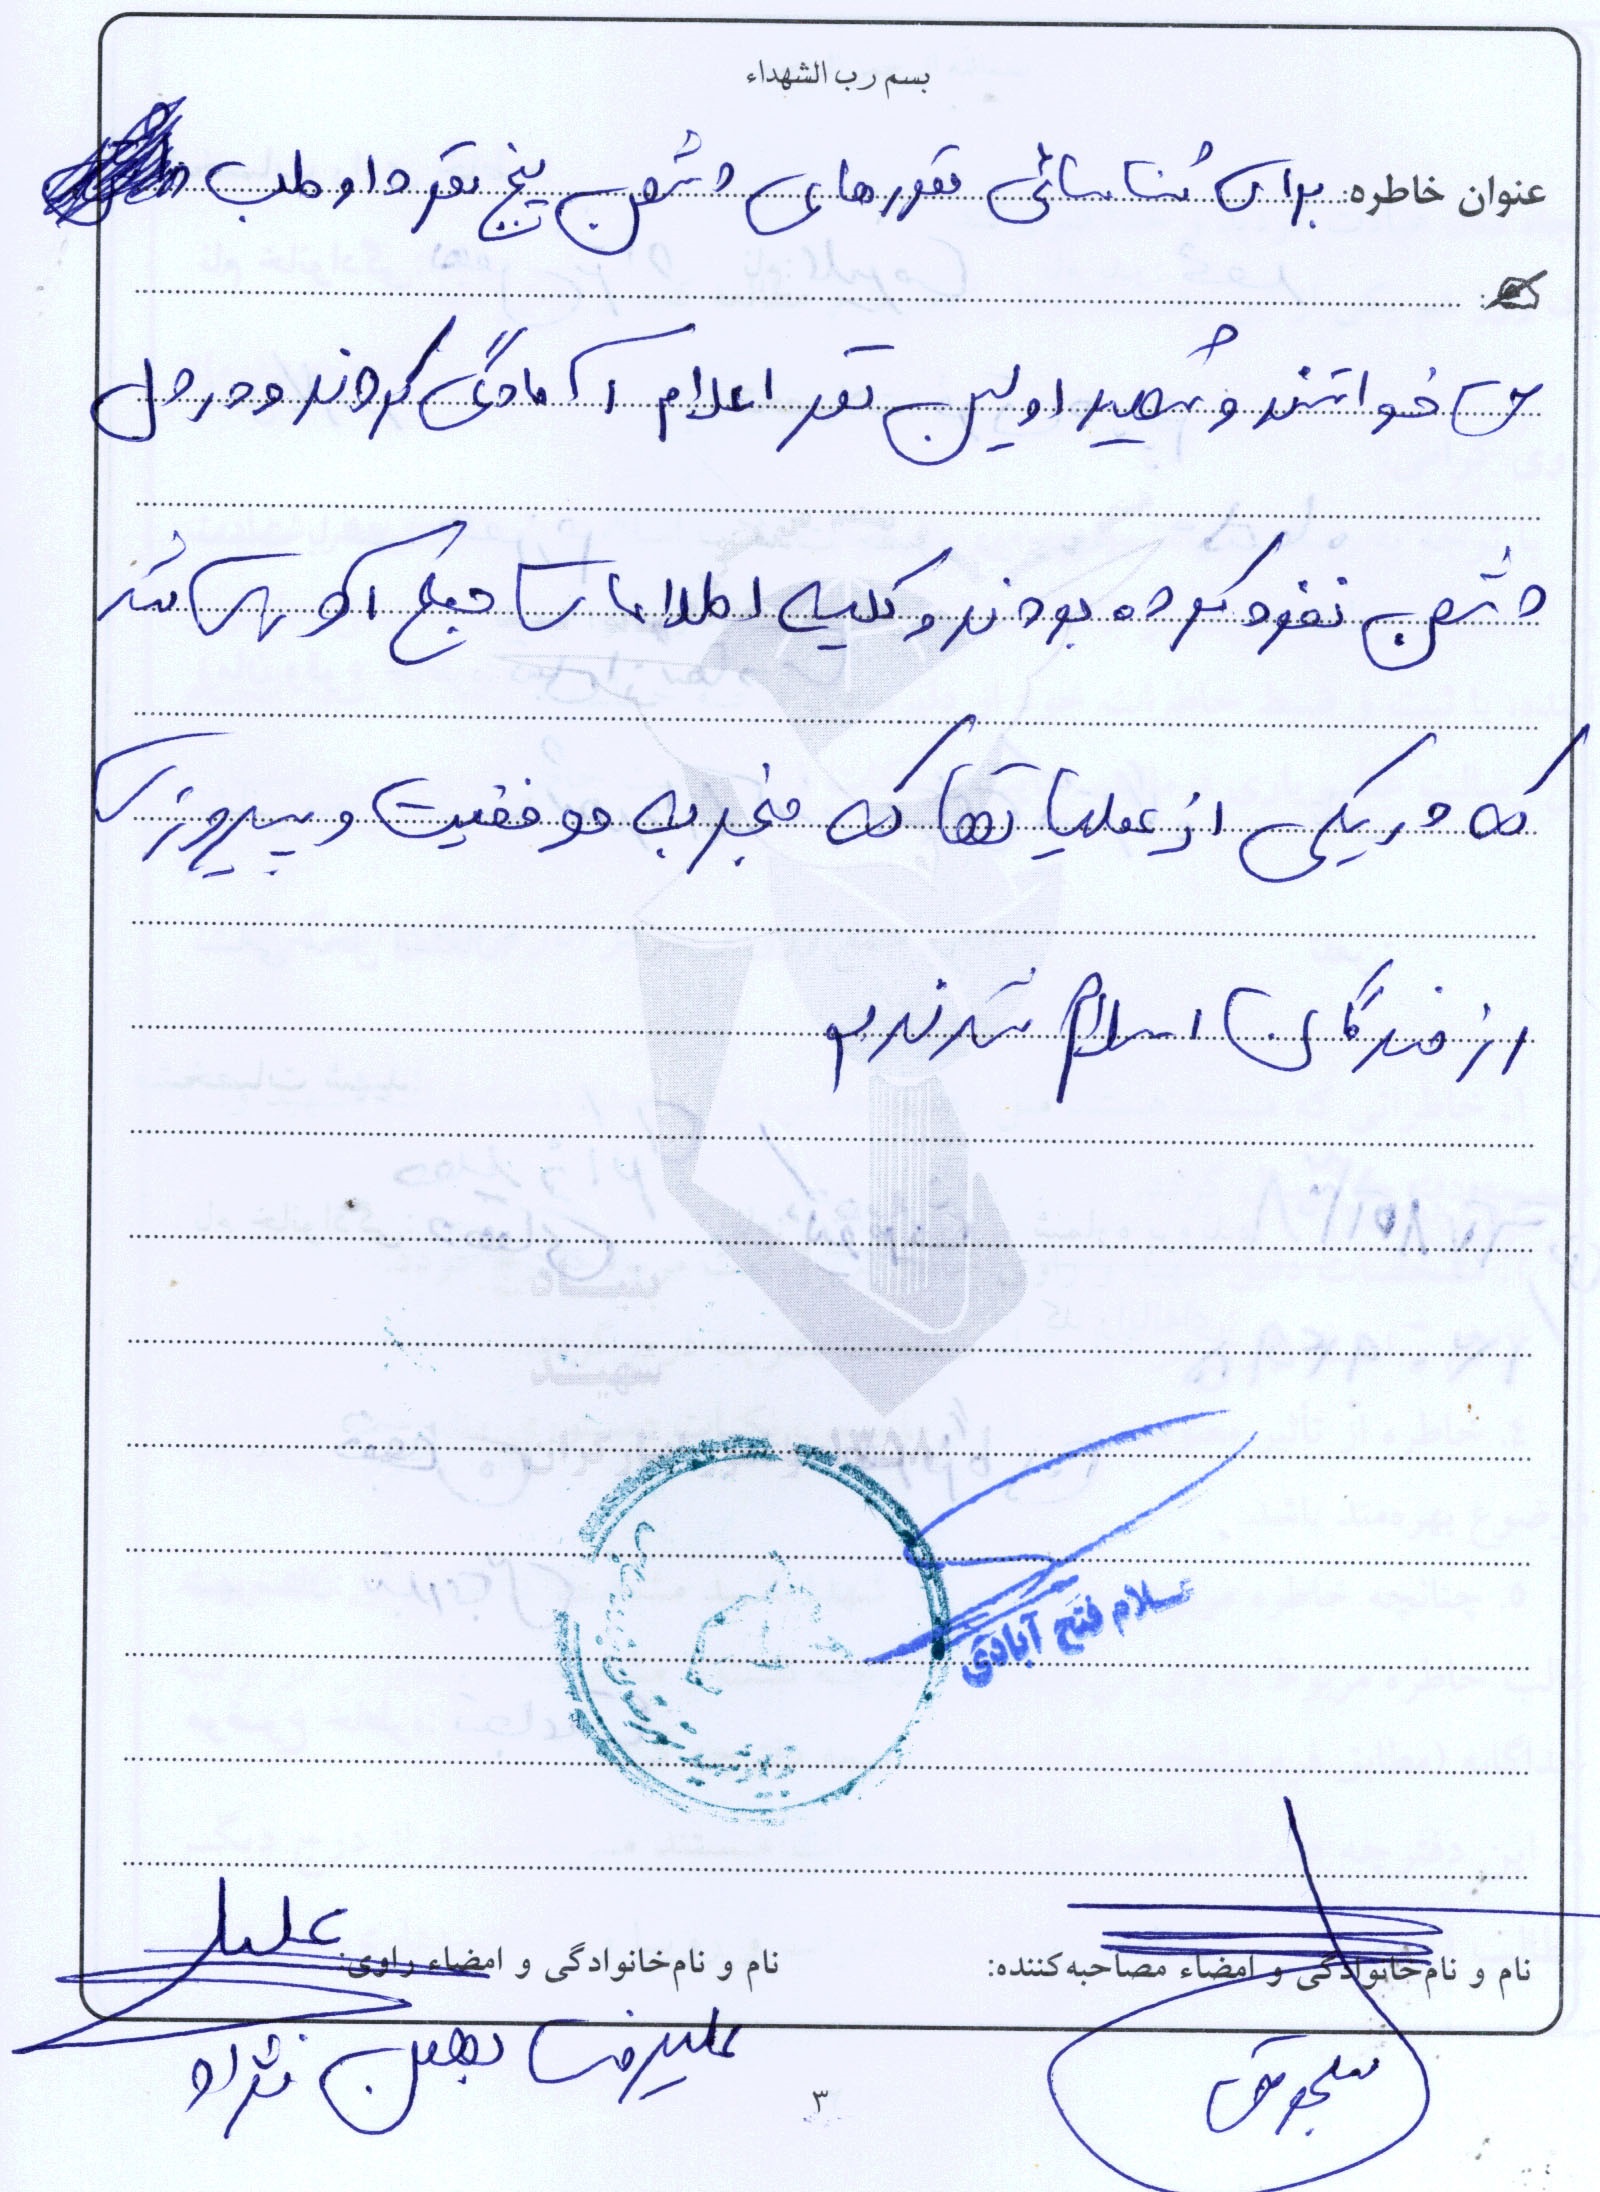 بسم رب الشهداء
عنوان خاطره: برای شناسائی نفورهای دشمن پنج نفر داوطلب
می خواستند و شهید اولین نفر اعلام آمادگی کردند و در دل
دشمن نفوذ کرده بودند و کلیه اطلاعات جمع آوری شد
که در یکی از عملیاتها که منجر به موفقیت و پیروزی
رزمندگان اسلام شدند
غلام فتح آبادی
نام و نام‌خانوادگی و امضاء مصاحبه‌کننده:
نام و نام‌خانوادگی و امضاء راوی:
سلجوقی
علیرضا بهمن نژاد
۳